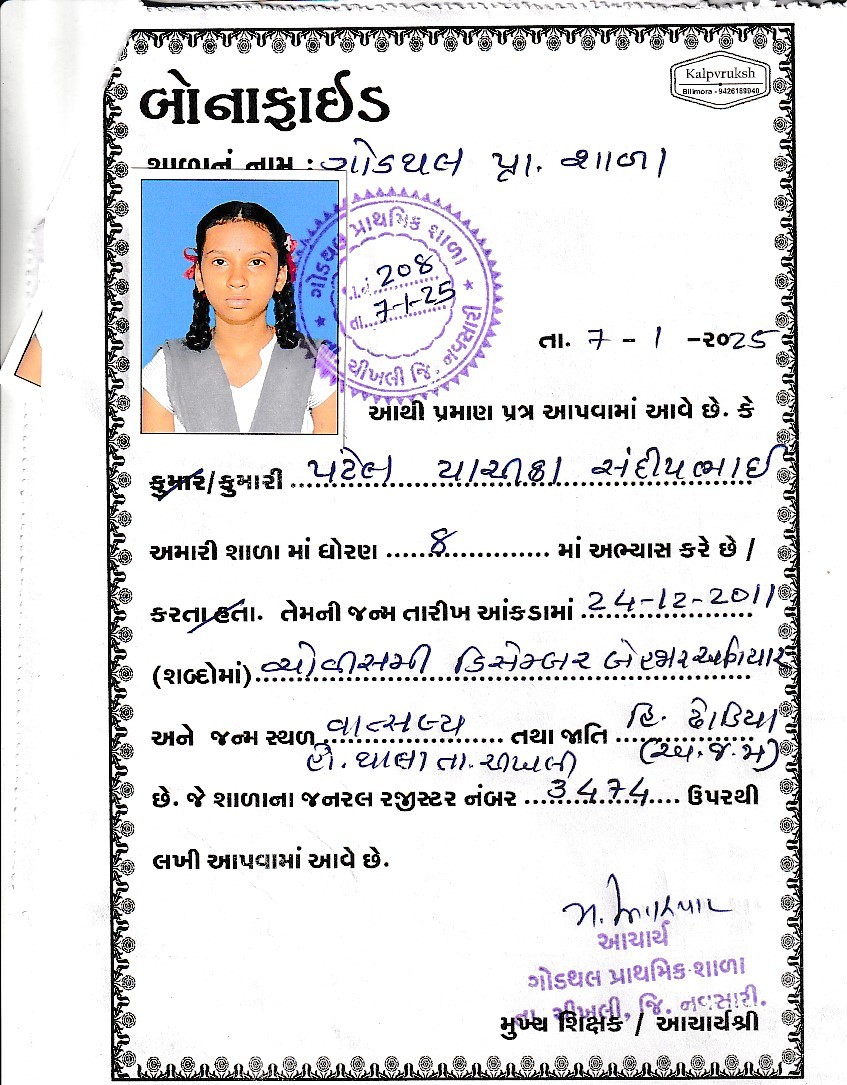 બોનાફાઈડ
Kalpvruksh
Bilimora - 9426189040
શાળાનું નામ : ગોડથલ પ્રા. શાળા
ગોડથલ પ્રાથમિક શાળા
208
તા. 7-1-25
તા. ચીખલી જિ. નવસારી
તા. 7 - 1 -૨૦25
આથી પ્રમાણ પત્ર આપવામાં આવે છે. કે
કુમાર/કુમારી પટેલ યાચીકા સંદીપભાઈ
અમારી શાળા માં ધોરણ ...8... માં અભ્યાસ કરે છે /
કરતા હતા. તેમની જન્મ તારીખ આંકડામાં 24-12-2011
(શબ્દોમાં) ચોવીસમી ડિસેમ્બર બે હજાર અગિયાર
અને જન્મ સ્થળ વાત્સલ્ય તથા જાતિ હિ. ઢોડિયા
હો. થાલા તા. ચીખલી (અ.જ.જા)
છે. જે શાળાના જનરલ રજીસ્ટર નંબર ...3474... ઉપરથી
લખી આપવામાં આવે છે.
આચાર્ય
ગોડથલ પ્રાથમિક શાળા
તા. ચીખલી, જિ. નવસારી.
મુખ્ય શિક્ષક / આચાર્યશ્રી